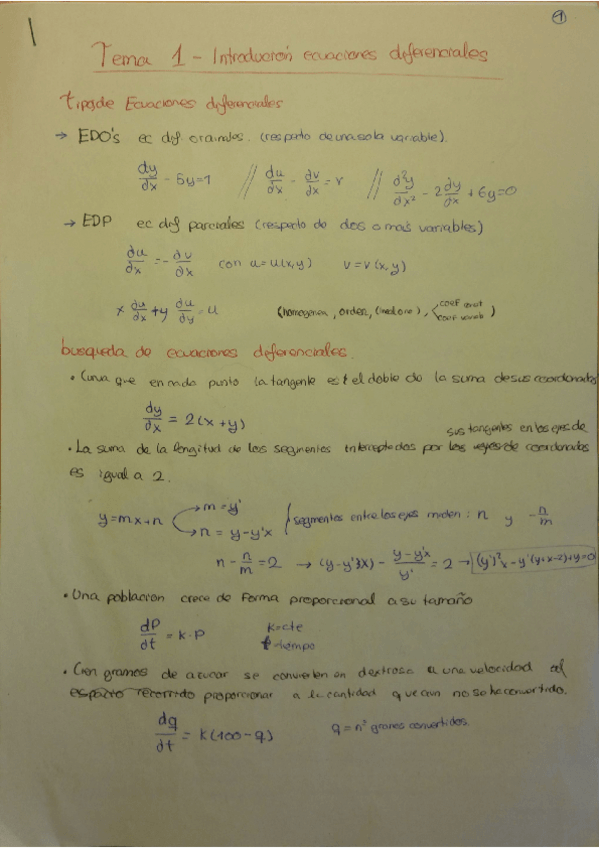 1
Tema 1 - Introducción ecuaciones diferenciales
tipos de Ecuaciones diferenciales
→ EDO's ec dif ordinales. (respecto de una sola variable).
dy/dx - 5y = 1 // du/dx - dv/dx = v // d²y/dx² - 2 dy/dx + 6y = 0
→ EDP ec dif parciales (respecto de dos o más variables)
∂u/∂x = - ∂v/∂x con u = u(x,y) v = v(x,y)
x ∂u/∂x + y ∂u/∂y = u (homogenea, orden, lineal o no), < coef const coef variab )
busqueda de ecuaciones diferenciales.
• Curva que en cada punto la tangente es el doble de la suma de sus coordenadas
dy/dx = 2(x+y)
sus tangentes en los ejes de
• La suma de la longitud de los segmentos interceptados por los coordenadas
es igual a 2.
y = mx + n → m = y' → n = y - y'x segmentos entre los ejes miden: n y -n/m
n - n/m = 2 → (y - y'x) - (y - y'x)/y' = 2 → (y')²x - y'(y+x-2) + y = 0
• Una población crece de forma proporcional a su tamaño
dP/dt = k·P k = cte
t = tiempo
• Cien gramos de azucar se convierten en dextrosa a una velocidad al
espacio recorrido proporcionar a la cantidad que aun no se ha convertido.
dq/dt = k(100 - q) q = nº gramos convertidos.